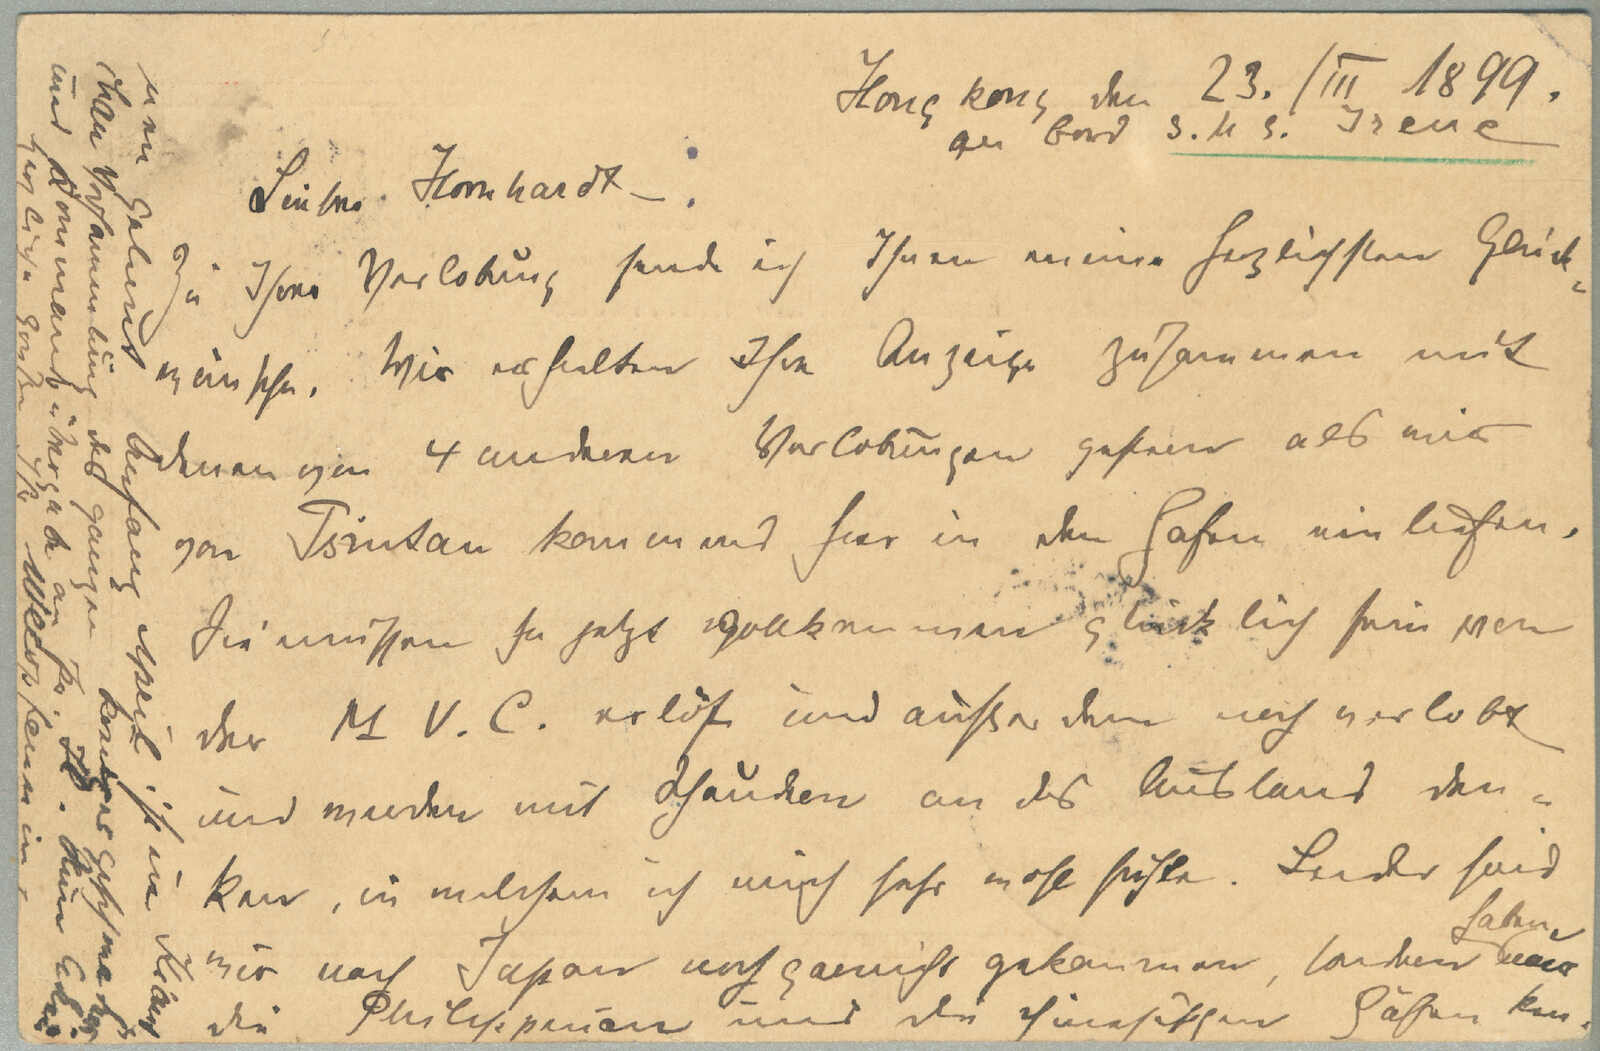 Hongkong den 23./III 1899.
an Bord S.M.S. Irene
Lieber Hornhardt.
Zu Ihrer Verlobung sende ich Ihnen meine herzlichsten Glück-
wünsche. Wir erhielten Ihre Anzeige zusammen mit
denen von 4 anderen Verlobungen gestern als wir
von Tsintau kommend hier in den Hafen einliefen.
Sie müssen ja jetzt vollkommen glücklich sein von
der M V. C. erlöst und außerdem noch verlobt
und werden mit Schaudern an das Ausland den-
ken, in welchem ich mich sehr wohl fühle. Leider sind
wir nach Japan noch garnicht gekommen, sondern haben nur
die Philippinen und die chinesischen Häfen ken-
nen gelernt. Anfang April ist in Kiau
chau Versammlung des ganzen Kreuzergeschwaders
und Kommandoübergabe an Pr. H.
herzliche Grüße Ihr